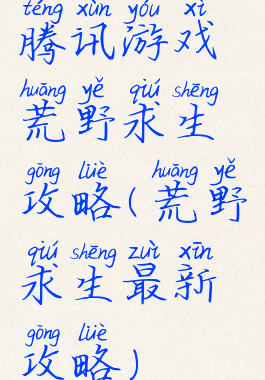 téng xùn yóu xì
腾讯游戏
huāng yě qiú shēng
荒野求生
gōng lüè huāng yě
攻略(荒野
qiú shēng zuì xīn
求生最新
gōng lüè
攻略)